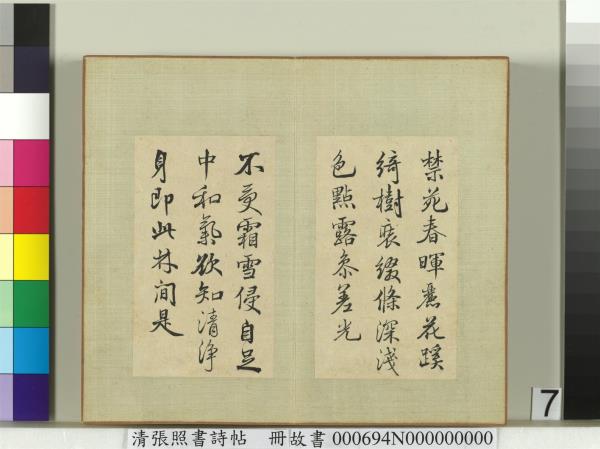 禁苑春暉麗花蹊
綺樹裝綴條深淺
色點露參差光
不受霜雪侵自足
中和氣欲知清淨
身即此林間是
7
清張照書詩帖 冊故書 000694N000000000